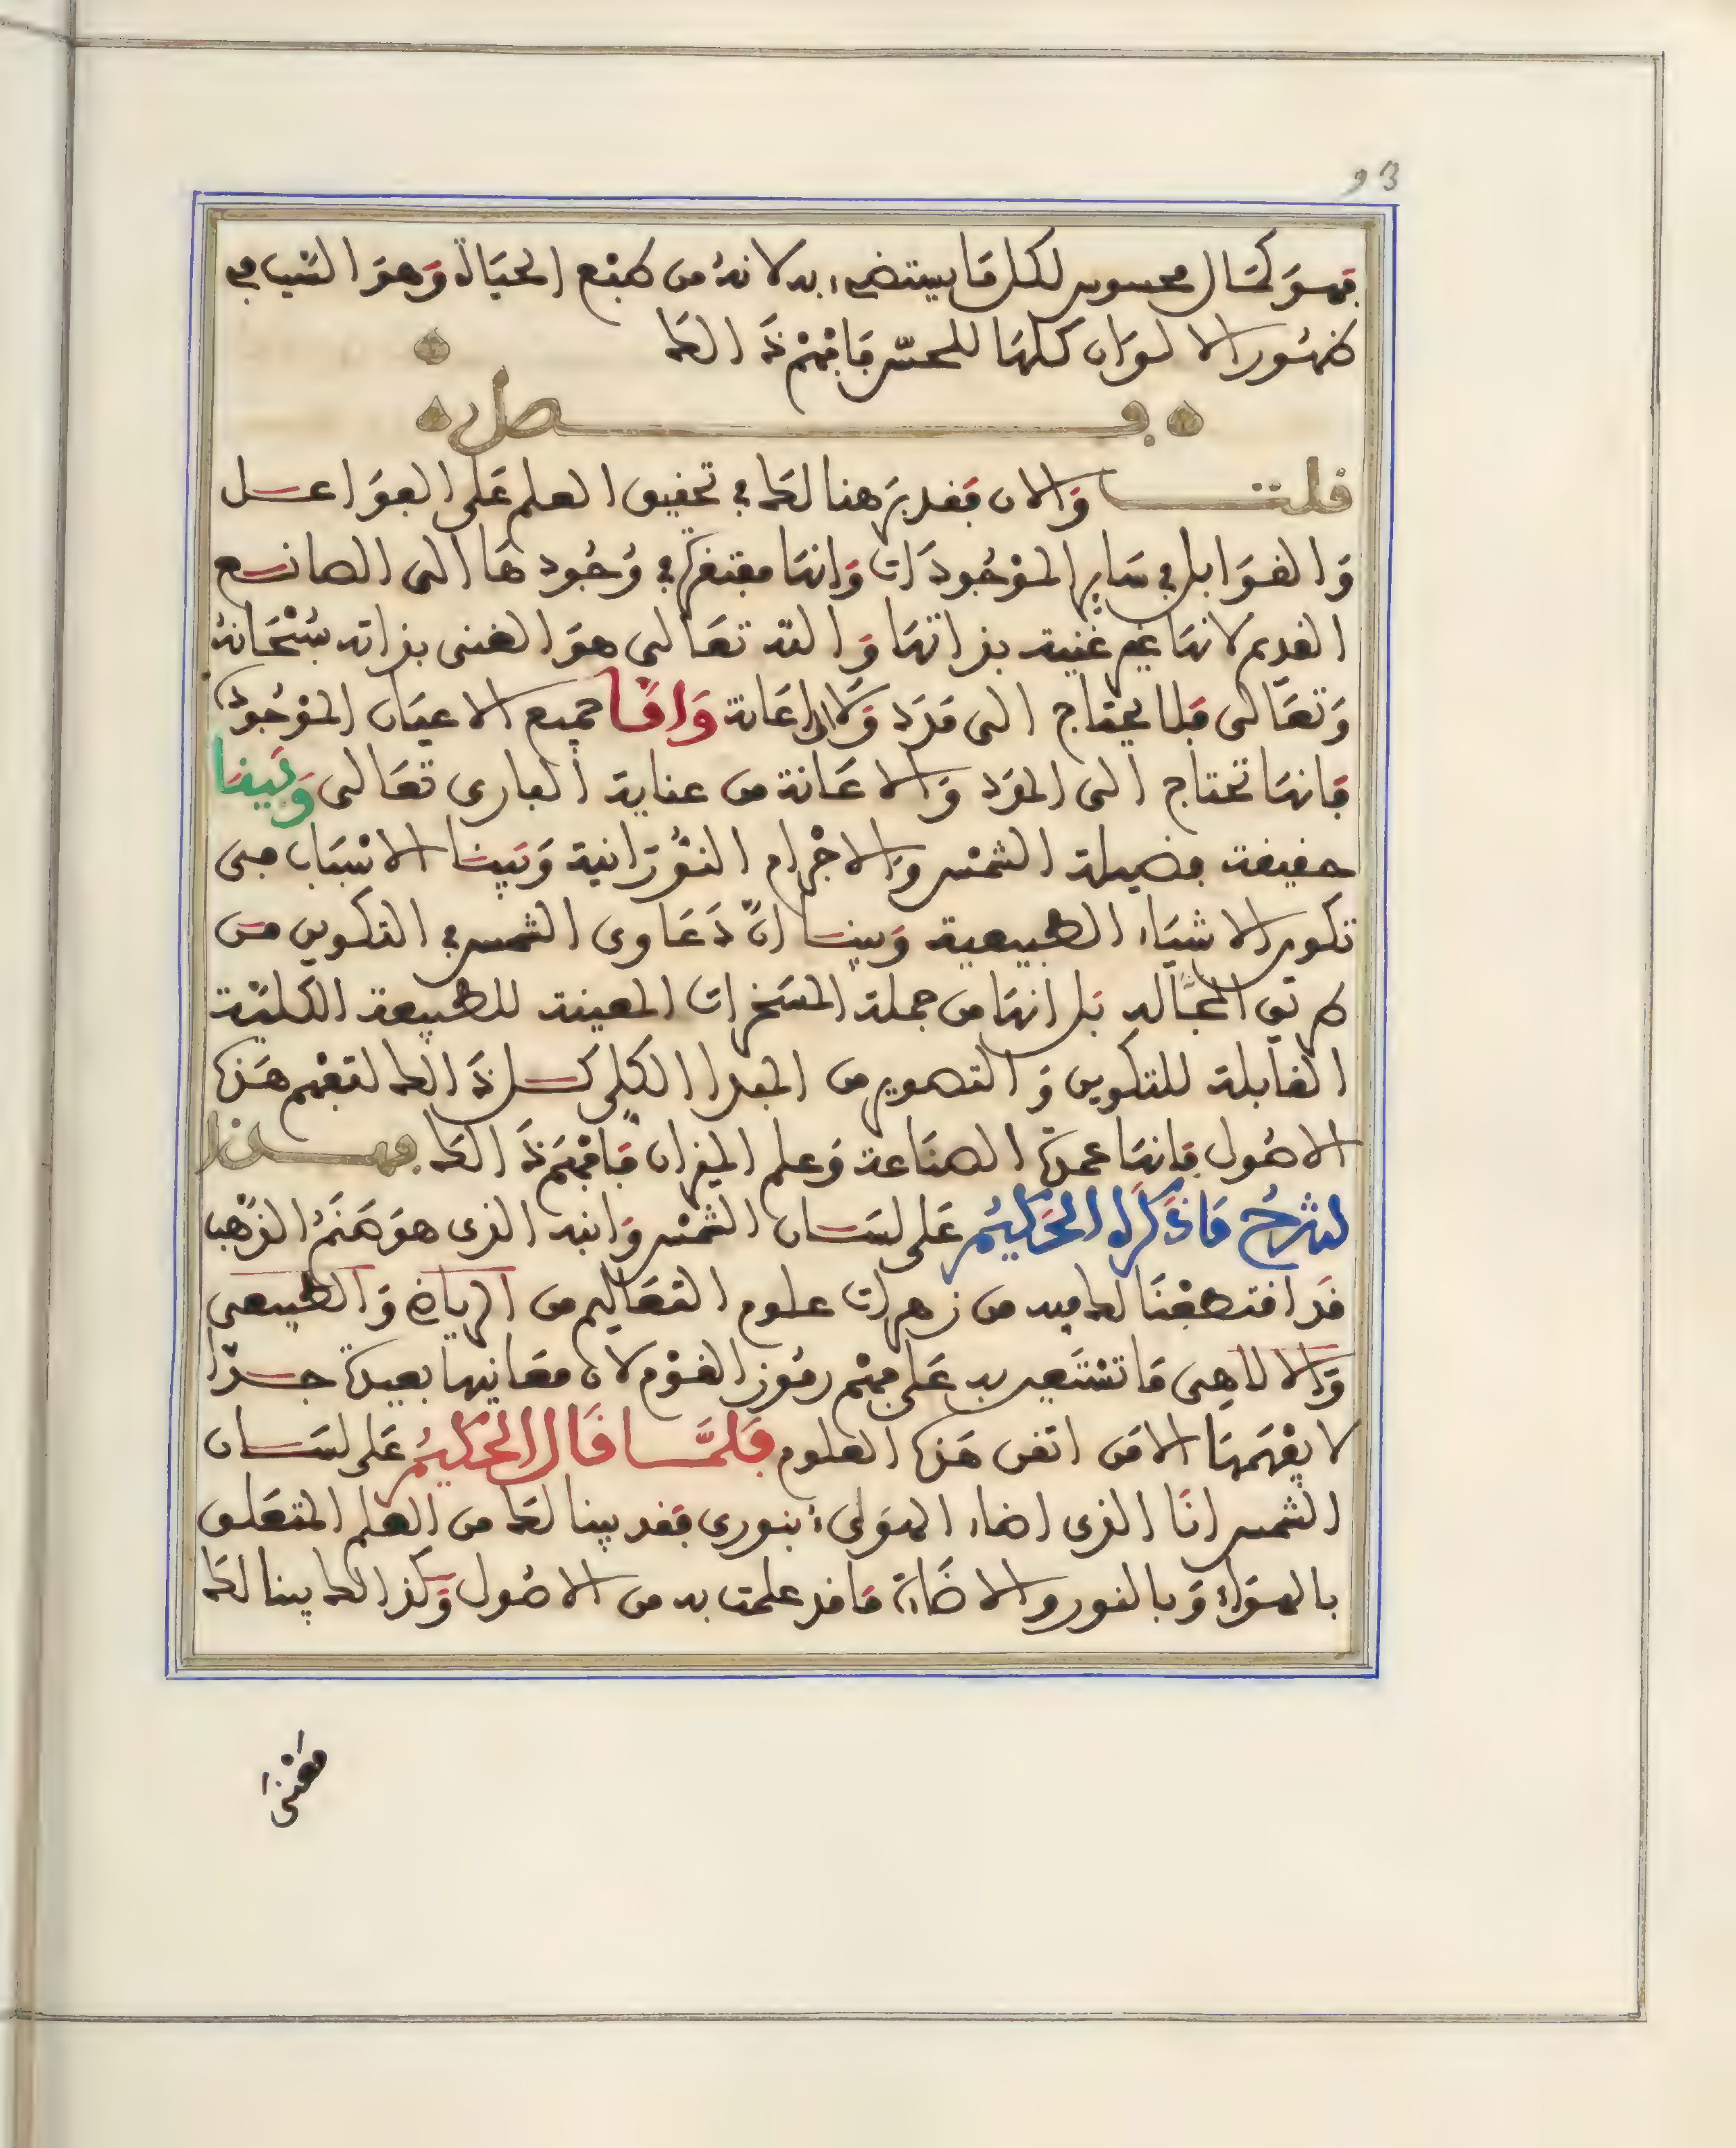 93
فهو كمال محسوس لكل ما يستضيء به لانه من طبع الحياة وهو السبب في
ظهور الالوان كلها للحس فافهم ذالك
فصل
قلت والان فقد برهنا لك في تحقيق العلم على الفواعل
والقوابل في ساير الموجودات وانها مفتقرة في وجودها الى الصانع
القديم لانها غير غنية بذاتها والله تعالى هو الغنى بذاته سبحانه
وتعالى فلا يحتاج الى مدد ولا الى اعانة واما جميع الاعيان الموجودة
فانها تحتاج الى المدد والاعانة من عناية البارى تعالى وبينا
حقيقة فضيلة الشمس والاجرام النورانية وبينا الاسباب في
تكون الاشياء الطبيعية وبينا ان دعاوى الشمس في التكوين من
طريق المجاز بل انها من جملة المسخرات المعينة للطبيعة الكلية
القابلة للتكوين والتصوير من المبدا الكلى كل ذالك لتفهم هذه
الاصول فانها عمدة الصناعة وعلم الميزان فافهم ذالك فهذا
لشرح ما ذكره الحكيم على لسان الشمس وابنه الذى هو صنم الذهب
قد اقتطفنا لك فيه من زهرات علوم التعاليم من الرياضى والطبيعى
والالاهى ما تستعين به على فهم رموز القوم لان معانيها بعيدة جدا
لا يفهمها الا من اتقن هذه العلوم فلما قال الحكيم على لسان
الشمس انا الذى اضاء الهواء بنورى فقد بينا لك من العلم المتعلق
بالهواء وبالنور والاضاءة ما قد علمت به من الاصول وكذالك بينا لك
معنى